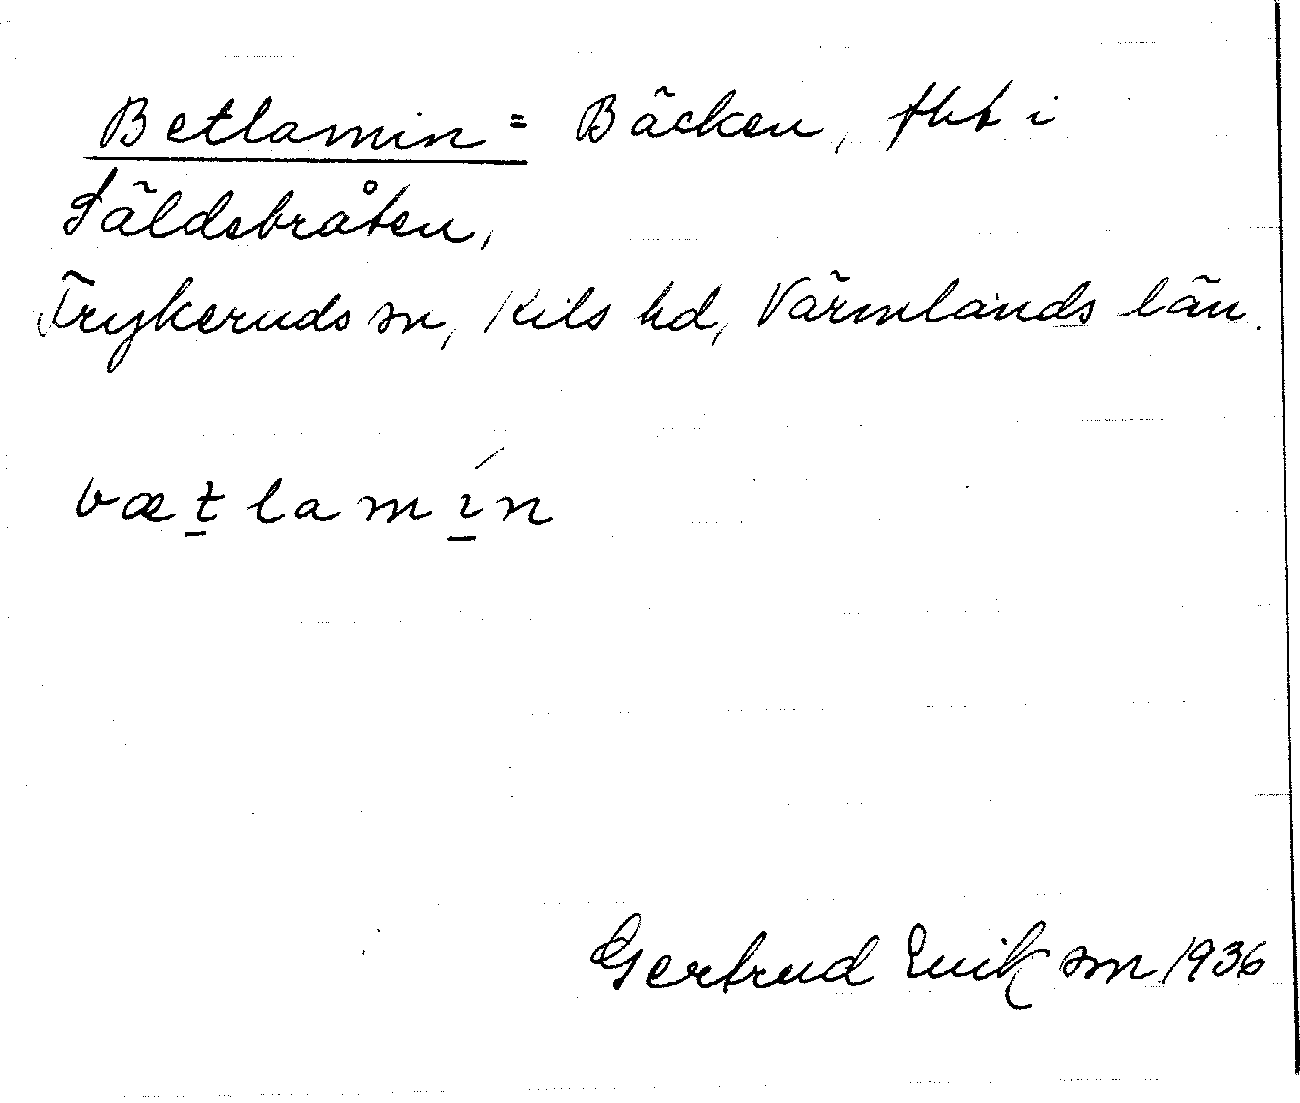 Betlamin = Bäcken, tht i
Säldebråten,
Frykeruds sn, Kils hd, Värmlands län.
bætlamín
Gertrud Eriksson 1936